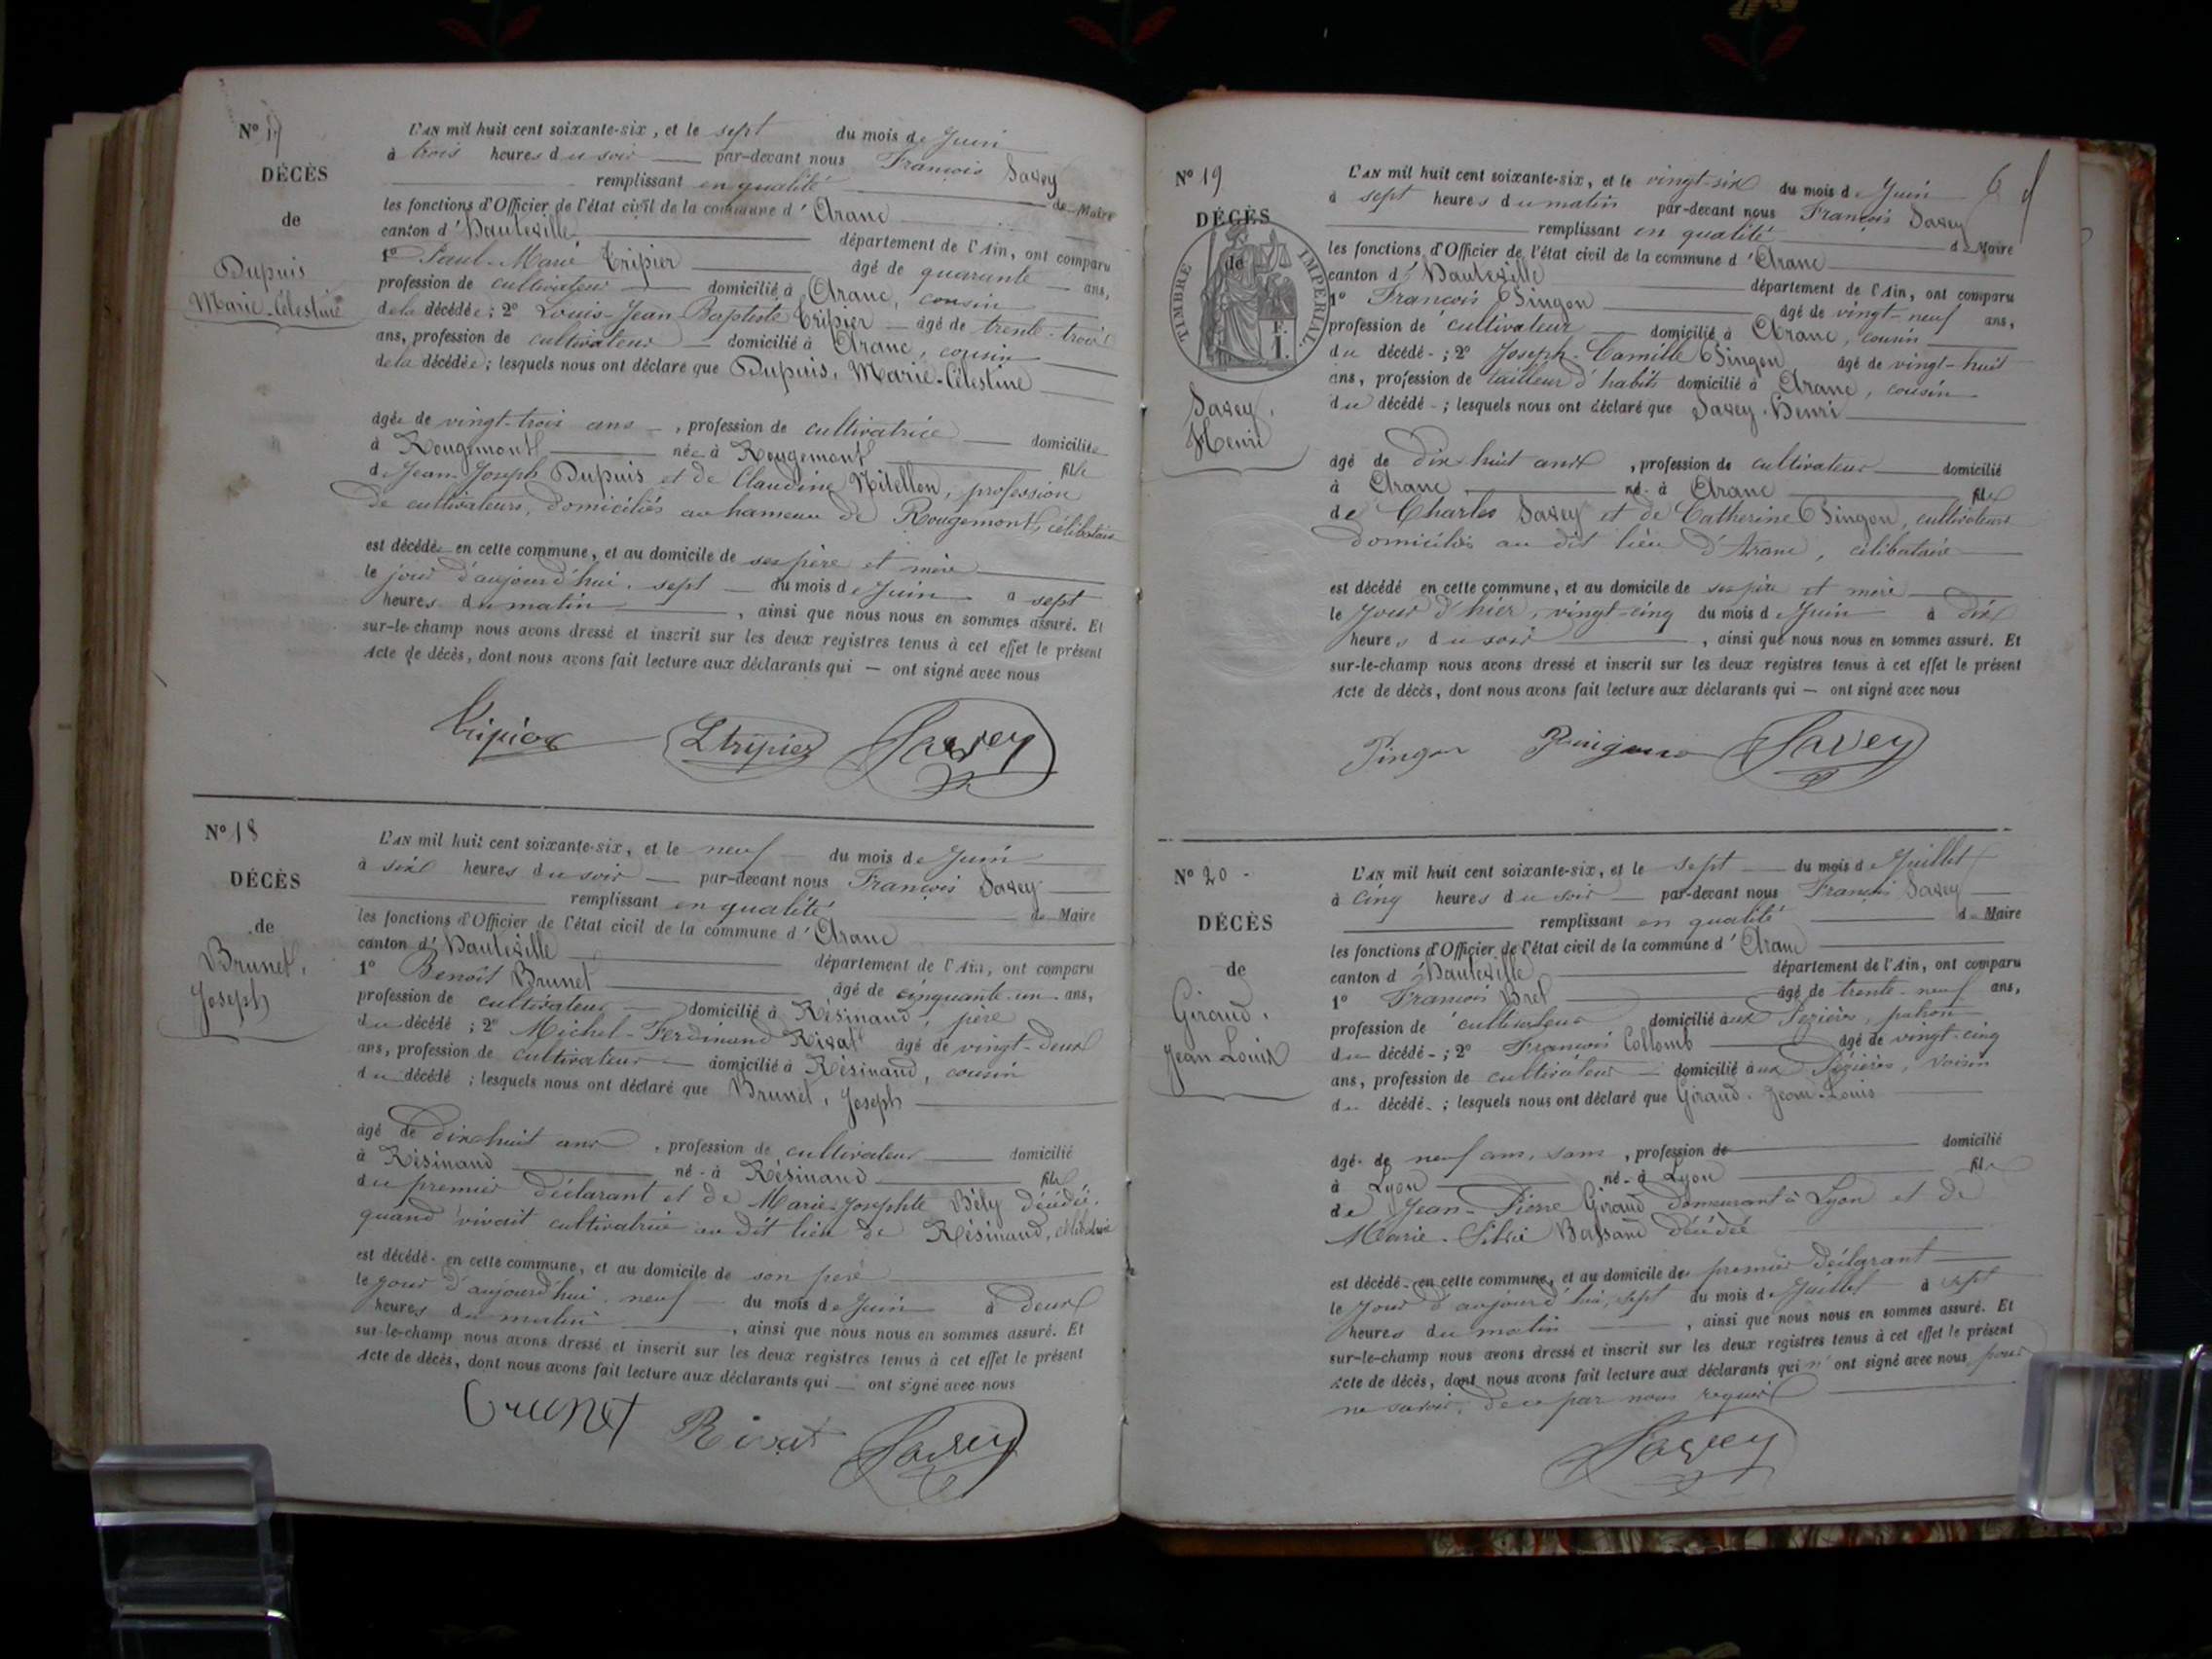 N° 17
DÉCÈS
de
Dupuis
Marie-Célestine
L'AN mil huit cent soixante-six, et le sept du mois de Juin
à trois heures du soir par-devant nous François Savey
remplissant en qualité de Maire
les fonctions d'Officier de l'état civil de la commune d'Aranc
canton d'Hauteville département de l'Ain, ont comparu
1° Paul-Marie Tripier âgé de quarante ans,
profession de cultivateur domicilié à Aranc, cousin
de la décédée; 2° Louis-Jean-Baptiste Tripier âgé de trente-trois
ans, profession de cultivateur domicilié à Aranc, cousin
de la décédée; lesquels nous ont déclaré que Dupuis, Marie-Célestine
âgée de vingt-trois ans, profession de cultivatrice domiciliée
à Rougemont née à Rougemont fille
de Jean-Joseph Dupuis et de Claudine, profession
de cultivateurs, domiciliés au hameau de Rougemont, célibataire
est décédée en cette commune, et au domicile de ses père et mère
le jour d'aujourd'hui, sept du mois de Juin à sept
heures du matin, ainsi que nous nous en sommes assuré. Et
sur-le-champ nous avons dressé et inscrit sur les deux registres tenus à cet effet le présent
Acte de décès, dont nous avons fait lecture aux déclarants qui — ont signé avec nous
Tripier Ltripier Savey
N° 18
DÉCÈS
de
Brunet,
Joseph
L'AN mil huit cent soixante-six, et le neuf du mois de Juin
à six heures du soir par-devant nous François Savey
remplissant en qualité de Maire
les fonctions d'Officier de l'état civil de la commune d'Aranc
canton d'Hauteville département de l'Ain, ont comparu
1° Benoît Brunet âgé de cinquante-un ans,
profession de cultivateur domicilié à Résinand, père
du décédé; 2° Michel-Ferdinand Rivat âgé de vingt-deux
ans, profession de cultivateur domicilié à Résinand, cousin
du décédé; lesquels nous ont déclaré que Brunet, Joseph
âgé de dix huit ans, profession de cultivateur domicilié
à Résinand né à Résinand fils
du premier déclarant et de Marie-Josephte Bély décédée,
quand vivait cultivatrice au dit lieu de Résinand, célibataire
est décédé en cette commune, et au domicile de son père
le jour d'aujourd'hui, neuf du mois de Juin à deux
heures du matin, ainsi que nous nous en sommes assuré. Et
sur-le-champ nous avons dressé et inscrit sur les deux registres tenus à cet effet le présent
Acte de décès, dont nous avons fait lecture aux déclarants qui — ont signé avec nous
Brunet Rivat Savey
6
N° 19
DÉCÈS
de
TIMBRE IMPERIAL
F.
1.
Savey,
Henri
L'AN mil huit cent soixante-six, et le vingt-six du mois de Juin
à sept heures du matin par-devant nous François Savey
remplissant en qualité de Maire
les fonctions d'Officier de l'état civil de la commune d'Aranc
canton d'Hauteville département de l'Ain, ont comparu
1° François Pingon âgé de vingt-neuf ans,
profession de cultivateur domicilié à Aranc, cousin
du décédé; 2° Joseph-Camille Pingon âgé de vingt-huit
ans, profession de tailleur d'habits domicilié à Aranc, cousin
du décédé; lesquels nous ont déclaré que Savey, Henri
âgé de dix huit ans, profession de cultivateur domicilié
à Aranc né à Aranc fils
de Charles Savey et de Catherine Pingon, cultivateurs
domiciliés au dit lieu d'Aranc, célibataire
est décédé en cette commune, et au domicile de ses père et mère
le jour d'hier, vingt-cinq du mois de Juin à dix
heures du soir, ainsi que nous nous en sommes assuré. Et
sur-le-champ nous avons dressé et inscrit sur les deux registres tenus à cet effet le présent
Acte de décès, dont nous avons fait lecture aux déclarants qui — ont signé avec nous
Pingon Savey
N° 20
DÉCÈS
de
Giraud,
Jean Louis
L'AN mil huit cent soixante-six, et le sept du mois de Juillet
à cinq heures du soir par-devant nous François Savey
remplissant en qualité de Maire
les fonctions d'Officier de l'état civil de la commune d'Aranc
canton d'Hauteville département de l'Ain, ont comparu
1° François Bret âgé de trente-neuf ans,
profession de cultivateur domicilié aux Pézières, patron
du décédé; 2° François Collomb âgé de vingt-cinq
ans, profession de cultivateur domicilié aux Pézières, voisin
du décédé; lesquels nous ont déclaré que Giraud, Jean-Louis
âgé de neuf ans, sans, profession de domicilié
à Lyon né à Lyon fils
de Jean-Pierre Giraud demeurant à Lyon et de
Marie-Silvie Bassand décédée
est décédé en cette commune, et au domicile du premier déclarant
le jour d'aujourd'hui, sept du mois de Juillet à sept
heures du matin, ainsi que nous nous en sommes assuré. Et
sur-le-champ nous avons dressé et inscrit sur les deux registres tenus à cet effet le présent
Acte de décès, dont nous avons fait lecture aux déclarants qui n'ont signé avec nous, pour
ne savoir, de ce par nous requis
Savey